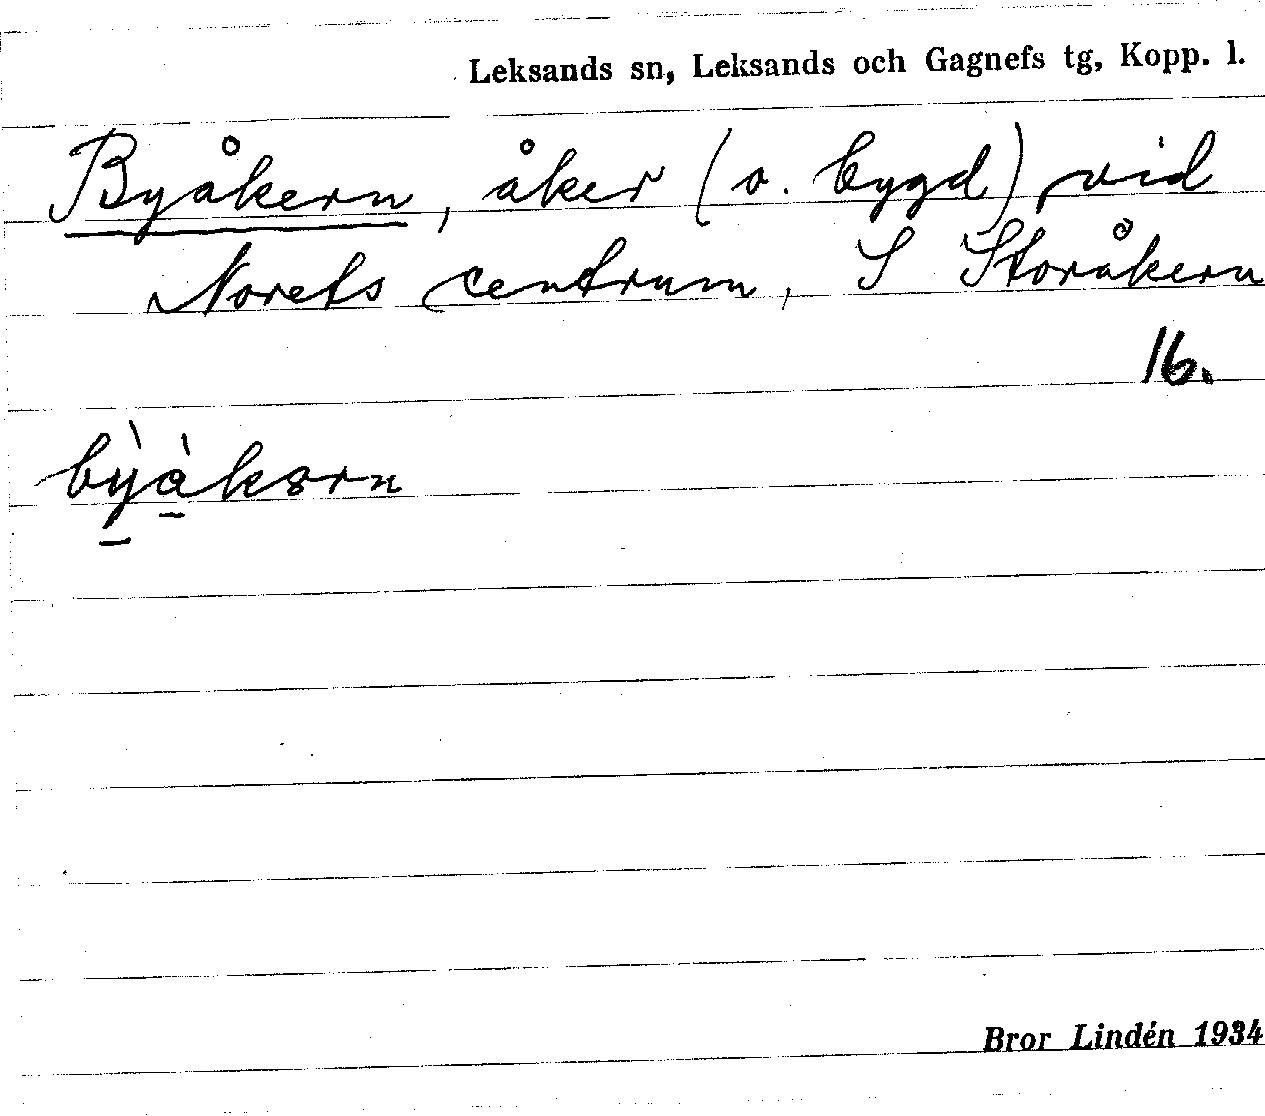 Leksands sn, Leksands och Gagnefs tg, Kopp. l.
Byåkern, åker (o. bygd) vid
Norets centrum, S Storåkern
16.
Bror Lindén 1934